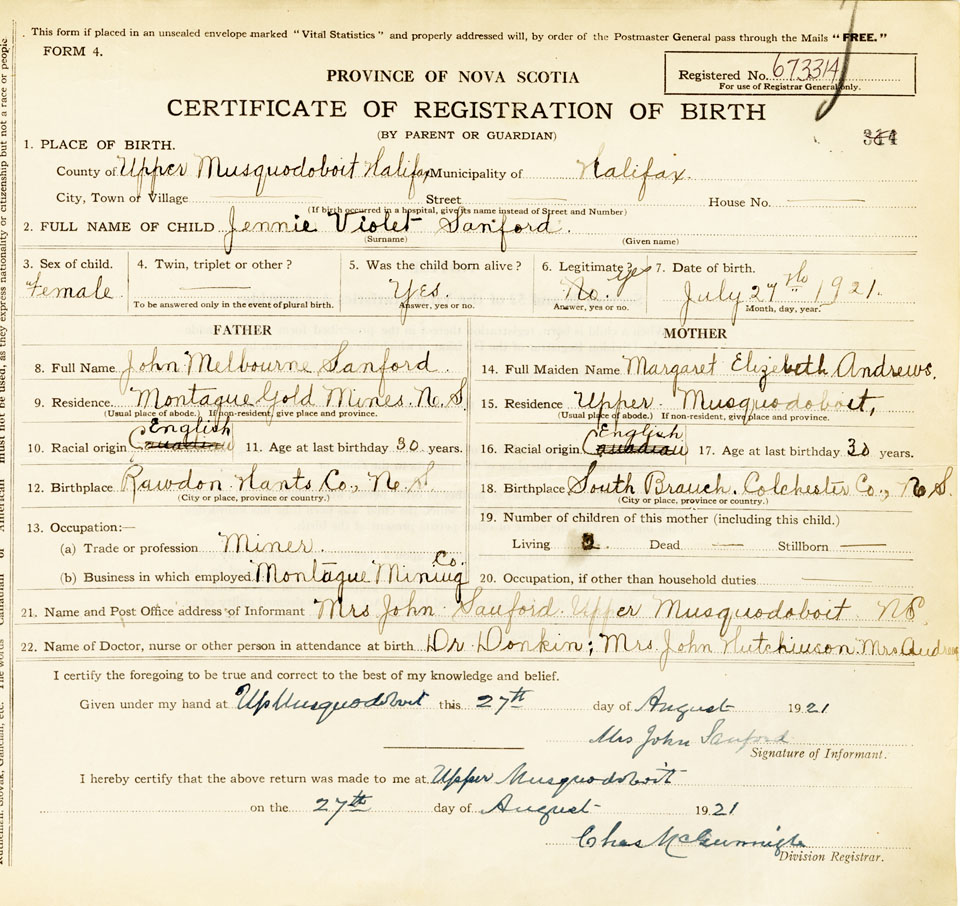 This form if placed in an unsealed envelope marked "Vital Statistics" and properly addressed will, by order of the Postmaster General pass through the Mails "FREE."
FORM 4.
PROVINCE OF NOVA SCOTIA
Registered No. 673314
For use of Registrar General only.
CERTIFICATE OF REGISTRATION OF BIRTH
(BY PARENT OR GUARDIAN)
314
1. PLACE OF BIRTH.
County of Upper Musquodoboit Halifax Municipality of Halifax.
City, Town or Village Street House No.
(If birth occurred in a hospital, give its name instead of Street and Number)
2. FULL NAME OF CHILD Jennie Violet Sanford.
(Surname) (Given name)
3. Sex of child. 4. Twin, triplet or other? 5. Was the child born alive? 6. Legitimate? yes 7. Date of birth.
Female Yes. No. July 27th 1921.
To be answered only in the event of plural birth. Answer, yes or no. Answer, yes or no. Month, day, year.
FATHER MOTHER
8. Full Name John Melbourne Sanford. 14. Full Maiden Name Margaret Elizebeth Andrews.
9. Residence. Montague Gold Mines. N. S. 15. Residence Upper Musquodoboit,
(Usual place of abode.) If non-resident, give place and province. (Usual place of abode.) If non-resident, give place and province.
10. Racial origin English Canadian 11. Age at last birthday 30 years. 16. Racial origin English Canadian 17. Age at last birthday 30 years.
12. Birthplace Rawdon Hants Co., N. S. 18. Birthplace South Branch. Colchester Co., N. S.
(City or place, province or country.) (City or place, province or country.)
13. Occupation:— 19. Number of children of this mother (including this child.)
(a) Trade or profession Miner. Living Dead Stillborn
(b) Business in which employed Montague Mining Co. 20. Occupation, if other than household duties
21. Name and Post Office address of Informant Mrs John Sanford Upper Musquodoboit N S.
22. Name of Doctor, nurse or other person in attendance at birth Dr Donkin; Mrs. John Hutchinson. Mrs Andrews
I certify the foregoing to be true and correct to the best of my knowledge and belief.
Given under my hand at Up Musquodoboit this 27th day of August 1921
Mrs John Sanford
Signature of Informant.
I hereby certify that the above return was made to me at Upper Musquodoboit
on the 27th day of August 1921
Chas
Division Registrar.
must not be used, as they express nationality or citizenship but not a race or people